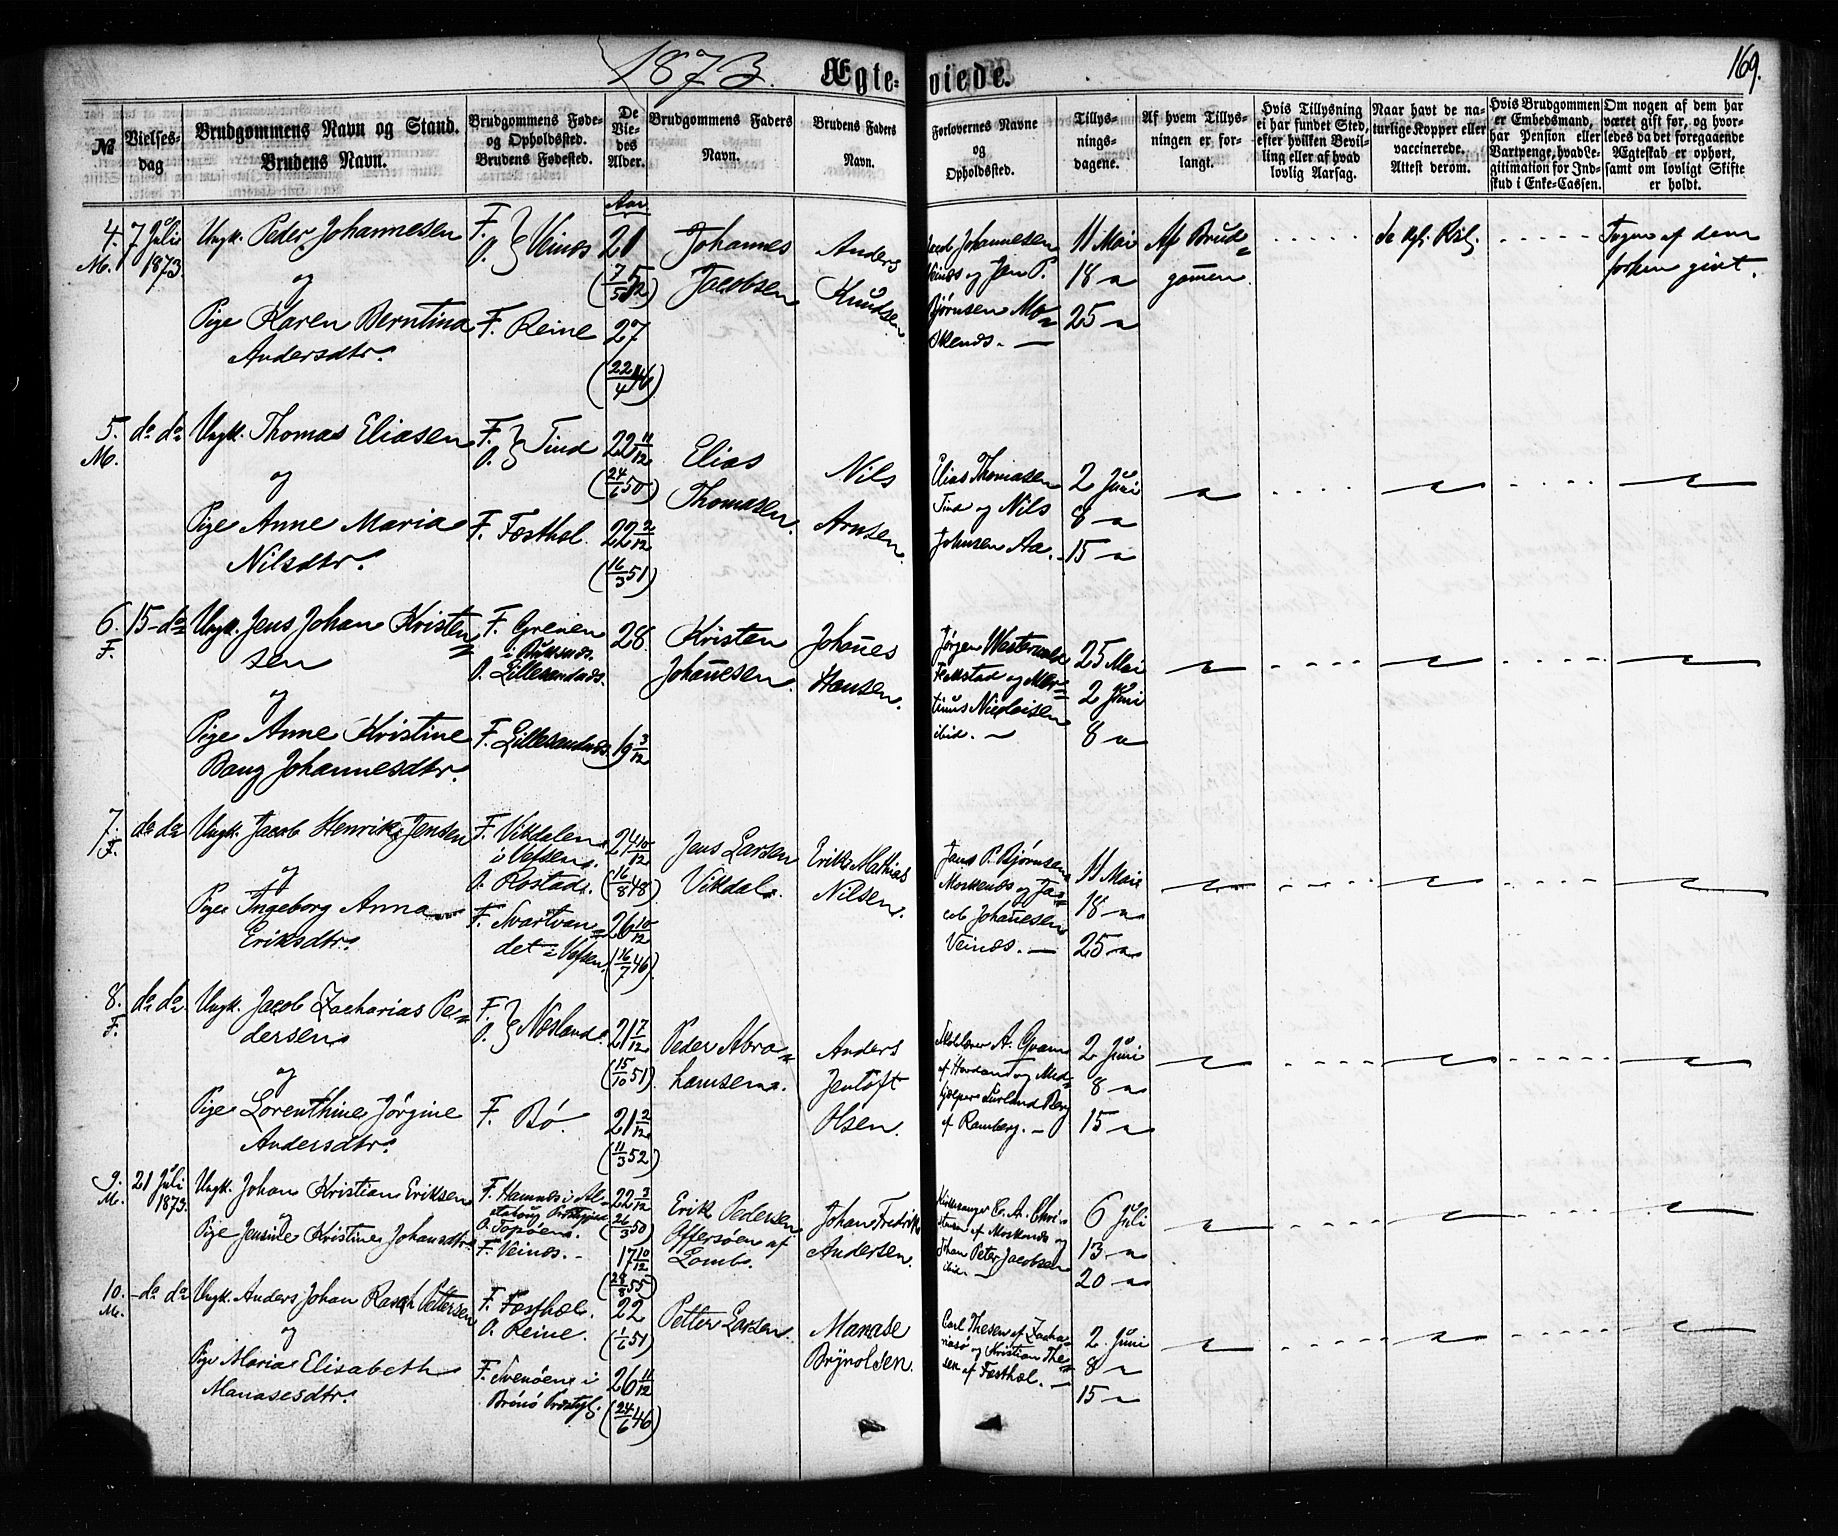 1873. Ægte-viede. 169.
№
Vielses-dag
Brudgommens Navn og Stand.
Brudens Navn.
Brudgommens Føde- og Opholdssted.
Brudens Fødested.
De Vie-des Alder.
Brudgommens Faders Navn.
Brudens Faders Navn.
Forlovernes Navne og Opholdssted.
Tillys-nings-dagene.
Af hvem Tillys-ningen er for-langt.
Hvis Tillysning ei har fundet Sted, efter hvilken Bevil-ling eller af hvad lovlig Aarsag.
Naar havt de na-turlige Kopper eller vaccinerede. Attest derom.
Hvis Brudgommen er Embedsmand, har Pension eller Vartpenge, hvad Le-gitimation for Ind-skud i Enke-Cassen.
Om nogen af dem har været gift før, og hvor-ledes da det foregaaende Ægteskab er ophørt, samt om lovligt Skifte er holdt.
Aar.
4. M. 7 Juli 1873.
Ungk. Peder Johannesen
og
Pige Karen Berntina
Andersdtr.
F. O. } Veinæs
F. Reine
21
(7/5 52)
27
(22/4 46)
Johannes
Jacobsen
Anders
Knudsen
Jacob Johannesen
Veinæs og Jan P.
Bjørnsen Mo=
skenæs. —
11 Mai
18 "
25 "
Af Brud=
gomen.
Ingen af dem
forhen givt.
5. M. do do
Ungk. Thomas Eliasen
og
Pige Anne Maria
Nilsdtr.
F. O. } Tind
F. Festhæl.
22 11/12
(24/6 50)
22 2/12
(16/3 51)
Elias
Thomasen.
Nils
Arntsen.
Elias Thomasen
Tind og Nils
Johnsen Aa.
2 Juni
8 "
15 "
6. F. 15 - do
Ungk. Jens Johan Kristen=
sen
og
Pige Anne Kristine
Bang Johannesdtr.
F. Grenen
i Buksnæs.
O. Lillesandnæs.
F. Lillesandnæs.
28.
19 3/12
Kristen
Johanesen.
Johanes
Hansen.
Jørgen Westervold
og Mor=
tinus Nicolaisen
ibid. —
25 Mai
2 Juni
8 "
7. F. do do
Ungk. Jacob Henrik Jensen
og
Pige Ingeborg Anna
Eriksdtr.
F. Vikdalen
i Vefsen.
O. Rostad.
F. Svartvan=
det i Vefsen.
24 10/12
(16/8 48)
26 10/12
(16/7 46)
Jens Larsen
Vikdal.
Erik Mathias
Nilsen.
Jans P. Bjørnsen
Moskenæs og Ja=
cob Johanesen
Veinæs. —
11 Mai
18 "
25 "
8. F. do do
Ungk. Jacob Zacharias Pe=
dersen
og
Pige Lorenthine Jørgine
Andersdtr.
F. O. } Nesland.
F. Bø.
21 7/12
(15/10 51)
21 2/12
(11/3 52)
Peder Abra=
hamsen.
Anders
Jentoft
Olsen.
A. Qvam
og Med=
hjælper Furland Berg
af Ramberg. —
2 Juni
8 "
15 "
9. M. 21 Juli 1873.
Ungk. Johan Kristian Eriksen
og
Pige Jensine Kristine Johansdtr.
F. Hamnæs i Al=
stahoug Præstegjeld
O. Topøen.
F. Veinæs. -
22 3/12
(26/3 50)
17 10/12
(28/8 55)
Erik Pedersen
Offersøen af
Lomb.
Johan Fredrik
Andersen.
Kirkesanger C. A. Chri=
stensen af Moskenæs og
Johan Peter Jacobsen
ibid. —
6 Juli
13 "
20 "
10. M. - do do
Ungk. Anders Johan Rasch Pettersen
og
Pige Maria Elisabeth
Manasesdtr.
F. Festhæl.
O. Reine.
F. Svenøen i
Brønø Præstgj.
22
(1/6 51)
26 11/12
(24/6 46)
Petter Larsen.
Manase
Brynolsen.
Carl Thesen af Zacha=
riasø og Kristian The=
sen af Festhæl. —
2. Juni
8 "
15 "